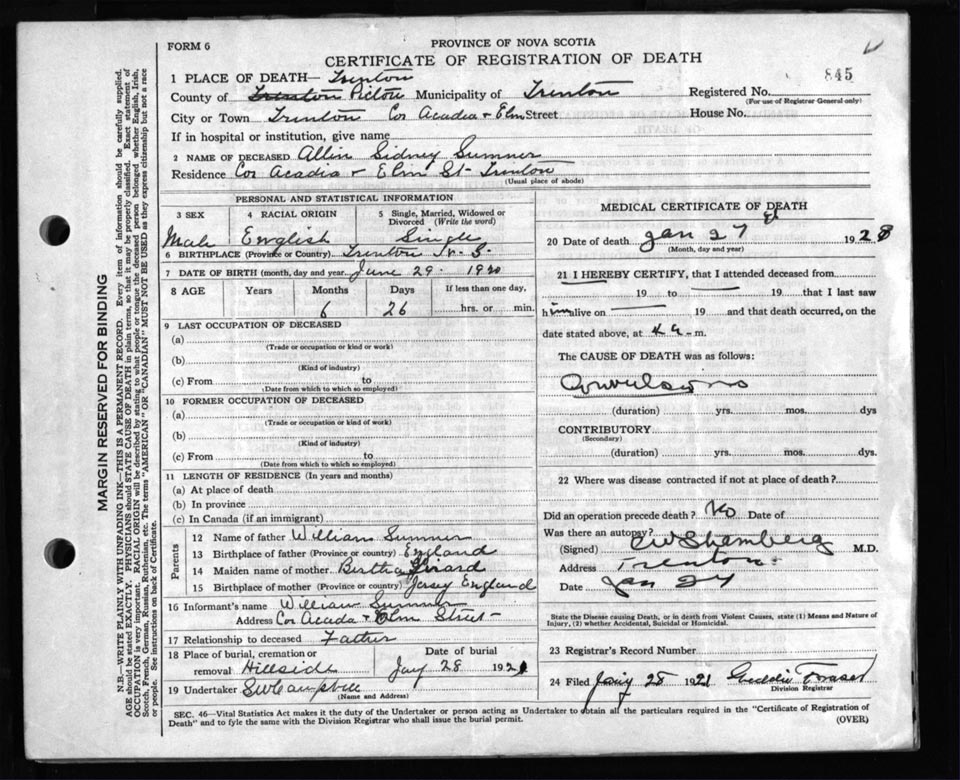 FORM 6
PROVINCE OF NOVA SCOTIA
CERTIFICATE OF REGISTRATION OF DEATH
845
1 PLACE OF DEATH— Trenton
County of Trenton Pictou Municipality of Trenton
Registered No.
(For use of Registrar General only)
City or Town Trenton Cor Acadia + Elm Street
House No.
If in hospital or institution, give name
2 NAME OF DECEASED Allin Sidney Sumner
Residence Cor Acadia + Elm St Trenton
(Usual place of abode)
PERSONAL AND STATISTICAL INFORMATION
3 SEX 4 RACIAL ORIGIN 5 Single, Married, Widowed or Divorced (Write the word)
Male English Single
6 BIRTHPLACE (Province or Country) Trenton N.S.
7 DATE OF BIRTH (month, day and year) June 29 1920
8 AGE Years Months Days If less than one day,
6 26 hrs. or min.
9 LAST OCCUPATION OF DECEASED
(a)
(Trade or occupation or kind or work)
(b)
(Kind of industry)
(c) From to
(Date from which to which so employed)
10 FORMER OCCUPATION OF DECEASED
(a)
(Trade or occupation or kind of work)
(b)
(Kind of industry)
(c) From to
(Date from which to which so employed)
11 LENGTH OF RESIDENCE (In years and months)
(a) At place of death
(b) In province
(c) In Canada (if an immigrant)
Parents
12 Name of father William Sumner
13 Birthplace of father (Province or country) England
14 Maiden name of mother Bertha
15 Birthplace of mother (Province or country) Jersey England
16 Informant's name William Sumner
Address Cor Acadia + Elm Street
17 Relationship to deceased Father
18 Place of burial, cremation or Date of burial
removal Hillside Jany 28 1921
19 Undertaker S W Campbell
(Name and Address)
MEDICAL CERTIFICATE OF DEATH
20 Date of death Jan 27 192
(Month, day and year)
21 I HEREBY CERTIFY, that I attended deceased from
19 to 19 that I last saw
him alive on 19 and that death occurred, on the
date stated above, at m.
The CAUSE OF DEATH was as follows:
Convulsions
(duration) yrs. mos. dys
CONTRIBUTORY
(Secondary)
(duration) yrs. mos. dys.
22 Where was disease contracted if not at place of death?
Did an operation precede death? No Date of
Was there an autopsy?
(Signed) M.D.
Address Trenton
Date Jan 27
State the Disease causing Death, or in death from Violent Causes, state (1) Means and Nature of Injury, (2) whether Accidental, Suicidal or Homicidal.
23 Registrar's Record Number
24 Filed Jany 28 1921 Fraser
Division Registrar
SEC. 46—Vital Statistics Act makes it the duty of the Undertaker or person acting as Undertaker to obtain all the particulars required in the "Certificate of Registration of
Death" and to fyle the same with the Division Registrar who shall issue the burial permit.
(OVER)
MARGIN RESERVED FOR BINDING
N.B.—WRITE PLAINLY WITH UNFADING INK—THIS IS A PERMANENT RECORD. Every item of information should be carefully supplied.
AGE should be stated EXACTLY. PHYSICIANS should STATE CAUSE OF DEATH in plain terms, so that it may be properly classified. Exact statement of
OCCUPATION is very important. RACIAL ORIGIN will be described by stating to what people or tongue the deceased person belonged whether English, Irish,
Scotch, French, German, Russian, Ruthenian, etc. The terms "AMERICAN" OR "CANADIAN" MUST NOT BE USED as they express citizenship but not a race
or people. See instructions on back of Certificate.